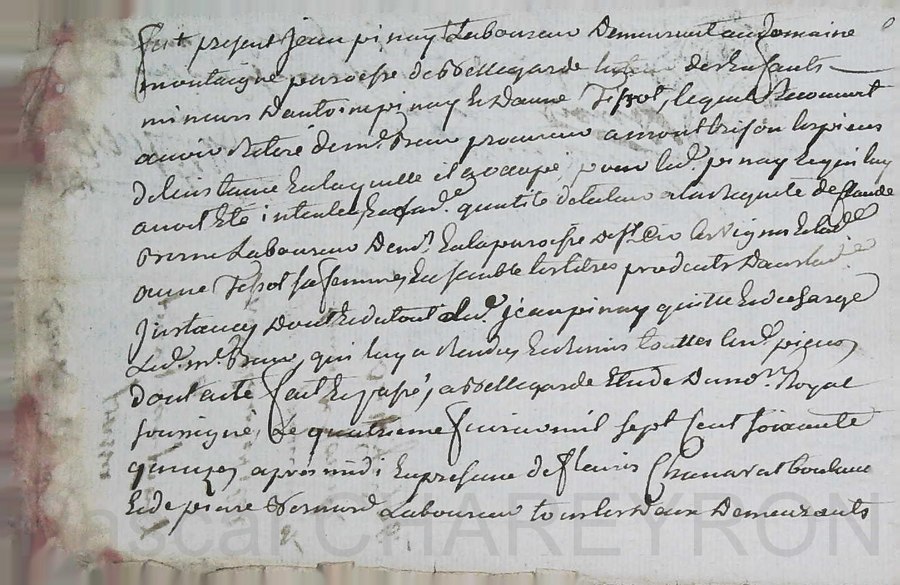 fut present jean pinay Laboureur Demeurant au Domaine
montaigne paroisse de Bellegarde tuteur des Enfants
mineurs D'antoine pinay Et D'anne Tissot, lequel Reconnoit
avoir Retiré de mr. Brun procureur a montbrison les pieces
De L'instance En laquelle il a occupé, pour Led. pinay Et qui luy
avoit Eté intentée En lad. qualité de tuteur a la Requete de Claude
Laboureur Demt. En la paroisse de St. Les Vignes Et lad.
anne Tissot sa femme, Ensemble les titres produits Dans lad.
Instance, Dont Et du tout Led. jean pinay quitte Et decharge
Led. mr. Brun, qui luy a Rendu Et Remis touttes Lesd. pieces,
dont acte fait Et passé, a Bellegarde Etude Du no.re Royal
soussigné, Le quatrieme fevrier mil sept Cent soixante
quinze, apres midi En presence de Boulanger
Et de pierre Bernard Laboureur tous les Deux Demeurants
pascal CHAREYRON